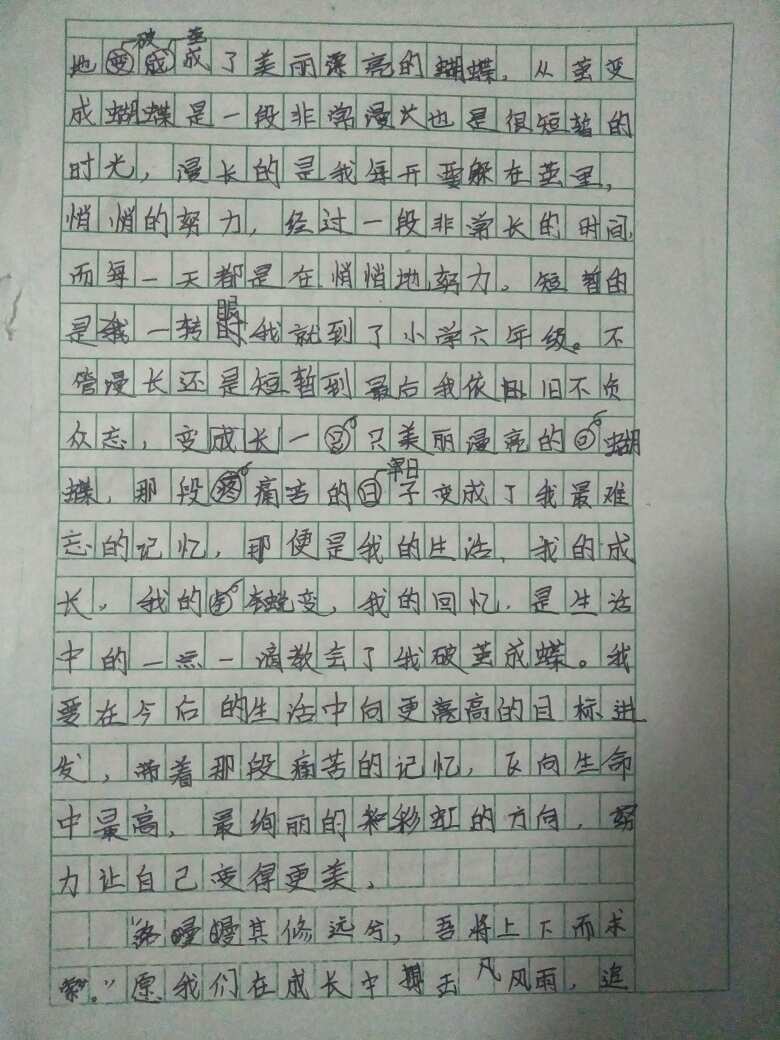 地破茧成了美丽漂亮的蝴蝶。从茧变
成蝴蝶是一段非常漫长也是很短暂的
时光，漫长的是我每开要躲在茧里，
悄悄的努力，经过一段非常长的时间，
而每一天都是在悄悄地努力。短暂的
是我一转眼我就到了小学六年级。不
管漫长还是短暂到最后我依旧不负
众志，变成长一只美丽漫亮的蝴
蝶，那段痛苦的日子变成了我最难
忘的记忆，那便是我的生活，我的成
长。我的蜕变，我的回忆，是生活
中的一点一滴教会了我破茧成蝶。我
要在今后的生活中向更亮高的目标进
发，带着那段痛苦的记忆，飞向生命
中最高，最绚丽的彩虹的方向，努
力让自己变得更美。
“路漫漫其修远兮，吾将上下而求
索。”愿我们在成长中搏击风雨，追